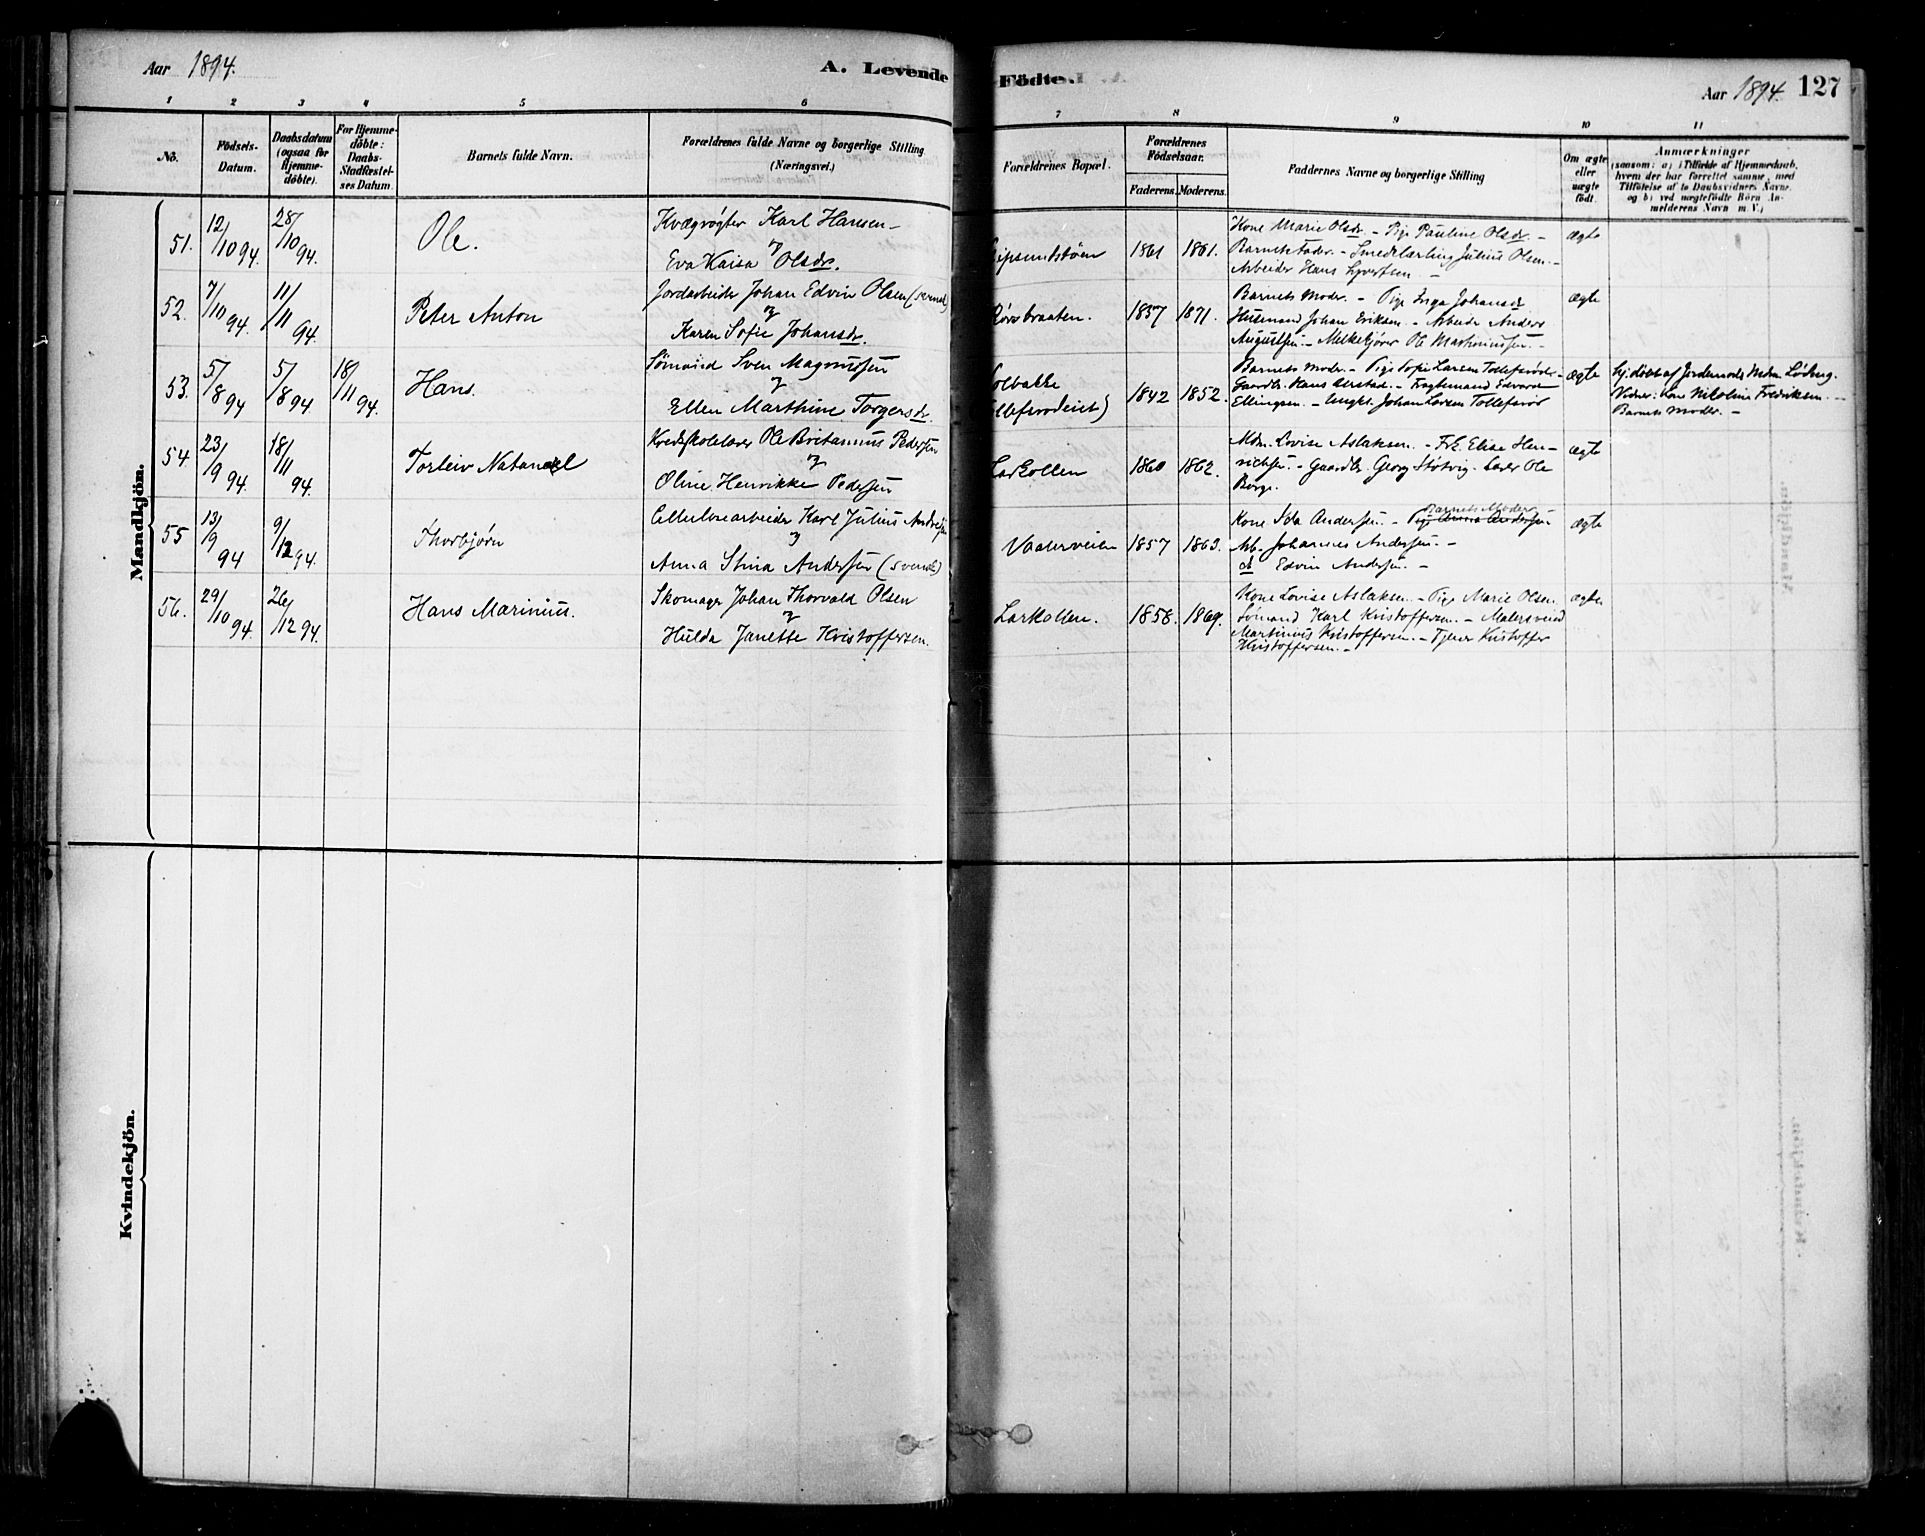 Aar 1894.
A. Levende
Födte.
Aar 1894. 127
1 2 3 4 5 6 7 8 9 10 11
No.
Födsels-Datum.
Daabsdatum (ogsaa for Hjemme-döbte).
For Hjemme-döbte: Daabs-Stadfæstel-ses Datum.
Barnets fulde Navn.
Forældrenes fulde Navne og borgerlige Stilling
(Næringsvei.)
Forældrenes Bopæl.
Forældrenes Födselsaar.
Faderens. Moderens.
Faddernes Navne og borgerlige Stilling
Om ægte eller uægte födt.
Anmærkninger
(saasom: a) i Tilfælde af Hjemmedaab,
hvem der har forrettet samme, med
Tilföielse af to Daabsvidners Navne.
og b) ved uægtefödte Börn An-
melderens Navn m. V.)
Mandkjön.
51. 12/10 94. 28/10 94. Ole.
Kvægrøgter Karl Hansen
og
Eva Kaisa Olsdr.
1861 1861.
Kone Marie Olsdr. - Pige Pauline Olsdr. -
Barnets Fader. - Smedlærling Julius Olsen. -
Arbeider Hans Syvertsen. -
ægte
52. 7/10 94. 11/11 94. Peter Anton
Jordarbeider Johan Edvin Olsen (svensk)
og
Karen Sofie Johansdr.
1857 1871.
Barnets Moder. - Pige Inga Johansdr
Husmand Johan Eriksen. - Arbeider Anders
Augustsen. - Melkekjører Ole Martiniussen. -
ægte
53. 5/8 94 5/8 94 18/11 94. Hans.
Sømand Sven Magnussen
og
Ellen Marthine Torgersdr.
1842 1852.
Barnets Moder. - Pige Sofie Larsen Tollefsrød. -
Gaardbr. Hans - Fragtemand Edvard
Ellingsen. - Ungk. Johan Larsen Tollefsrød
ægte
hj.døbt af Jordemoder Mdm. Løberg.
Vidner: Kone Nikoline Fredriksen. -
Barnets Moder. -
54 23/9 94. 18/11 94. Torleiv Natanael
Kredsskolelærer Ole Britannius Pedersen
og
Oline Henrikke Pedersen
Larkollen 1860 1862.
Mdm. Lovise Aslaksen. - Frk. Elise Hen-
richsen. - Gaardbr. Georg Støtvig. Lærer Ole
Borge.
ægte
55 13/9 94 9/12 94. Thorbjørn
Cellulosearbeider Karl Julius Andersen
og
Anna Stina Andersen (svensk)
Vaalerveien 1857 1863.
Kone Ida Andersen. - Pige Anna Andersen Barnets Moder
Arb. Johannes Andersen. -
do Edvin Andersen. -
ægte
56. 29/10 94. 26/12 94. Hans Marinius.
Skomager Johan Thorvald Olsen
og
Hulda Janette Kristoffersen.
Larkollen. 1858. 1869.
Kone Lovise Aslaksen. - Pige Marie Olsen.
Sømand Karl Kristoffersen. - Malersvend
Martinius Kristoffersen. - Tjener Kristoffer
Kristoffersen. -
ægte
Kvindekjön.